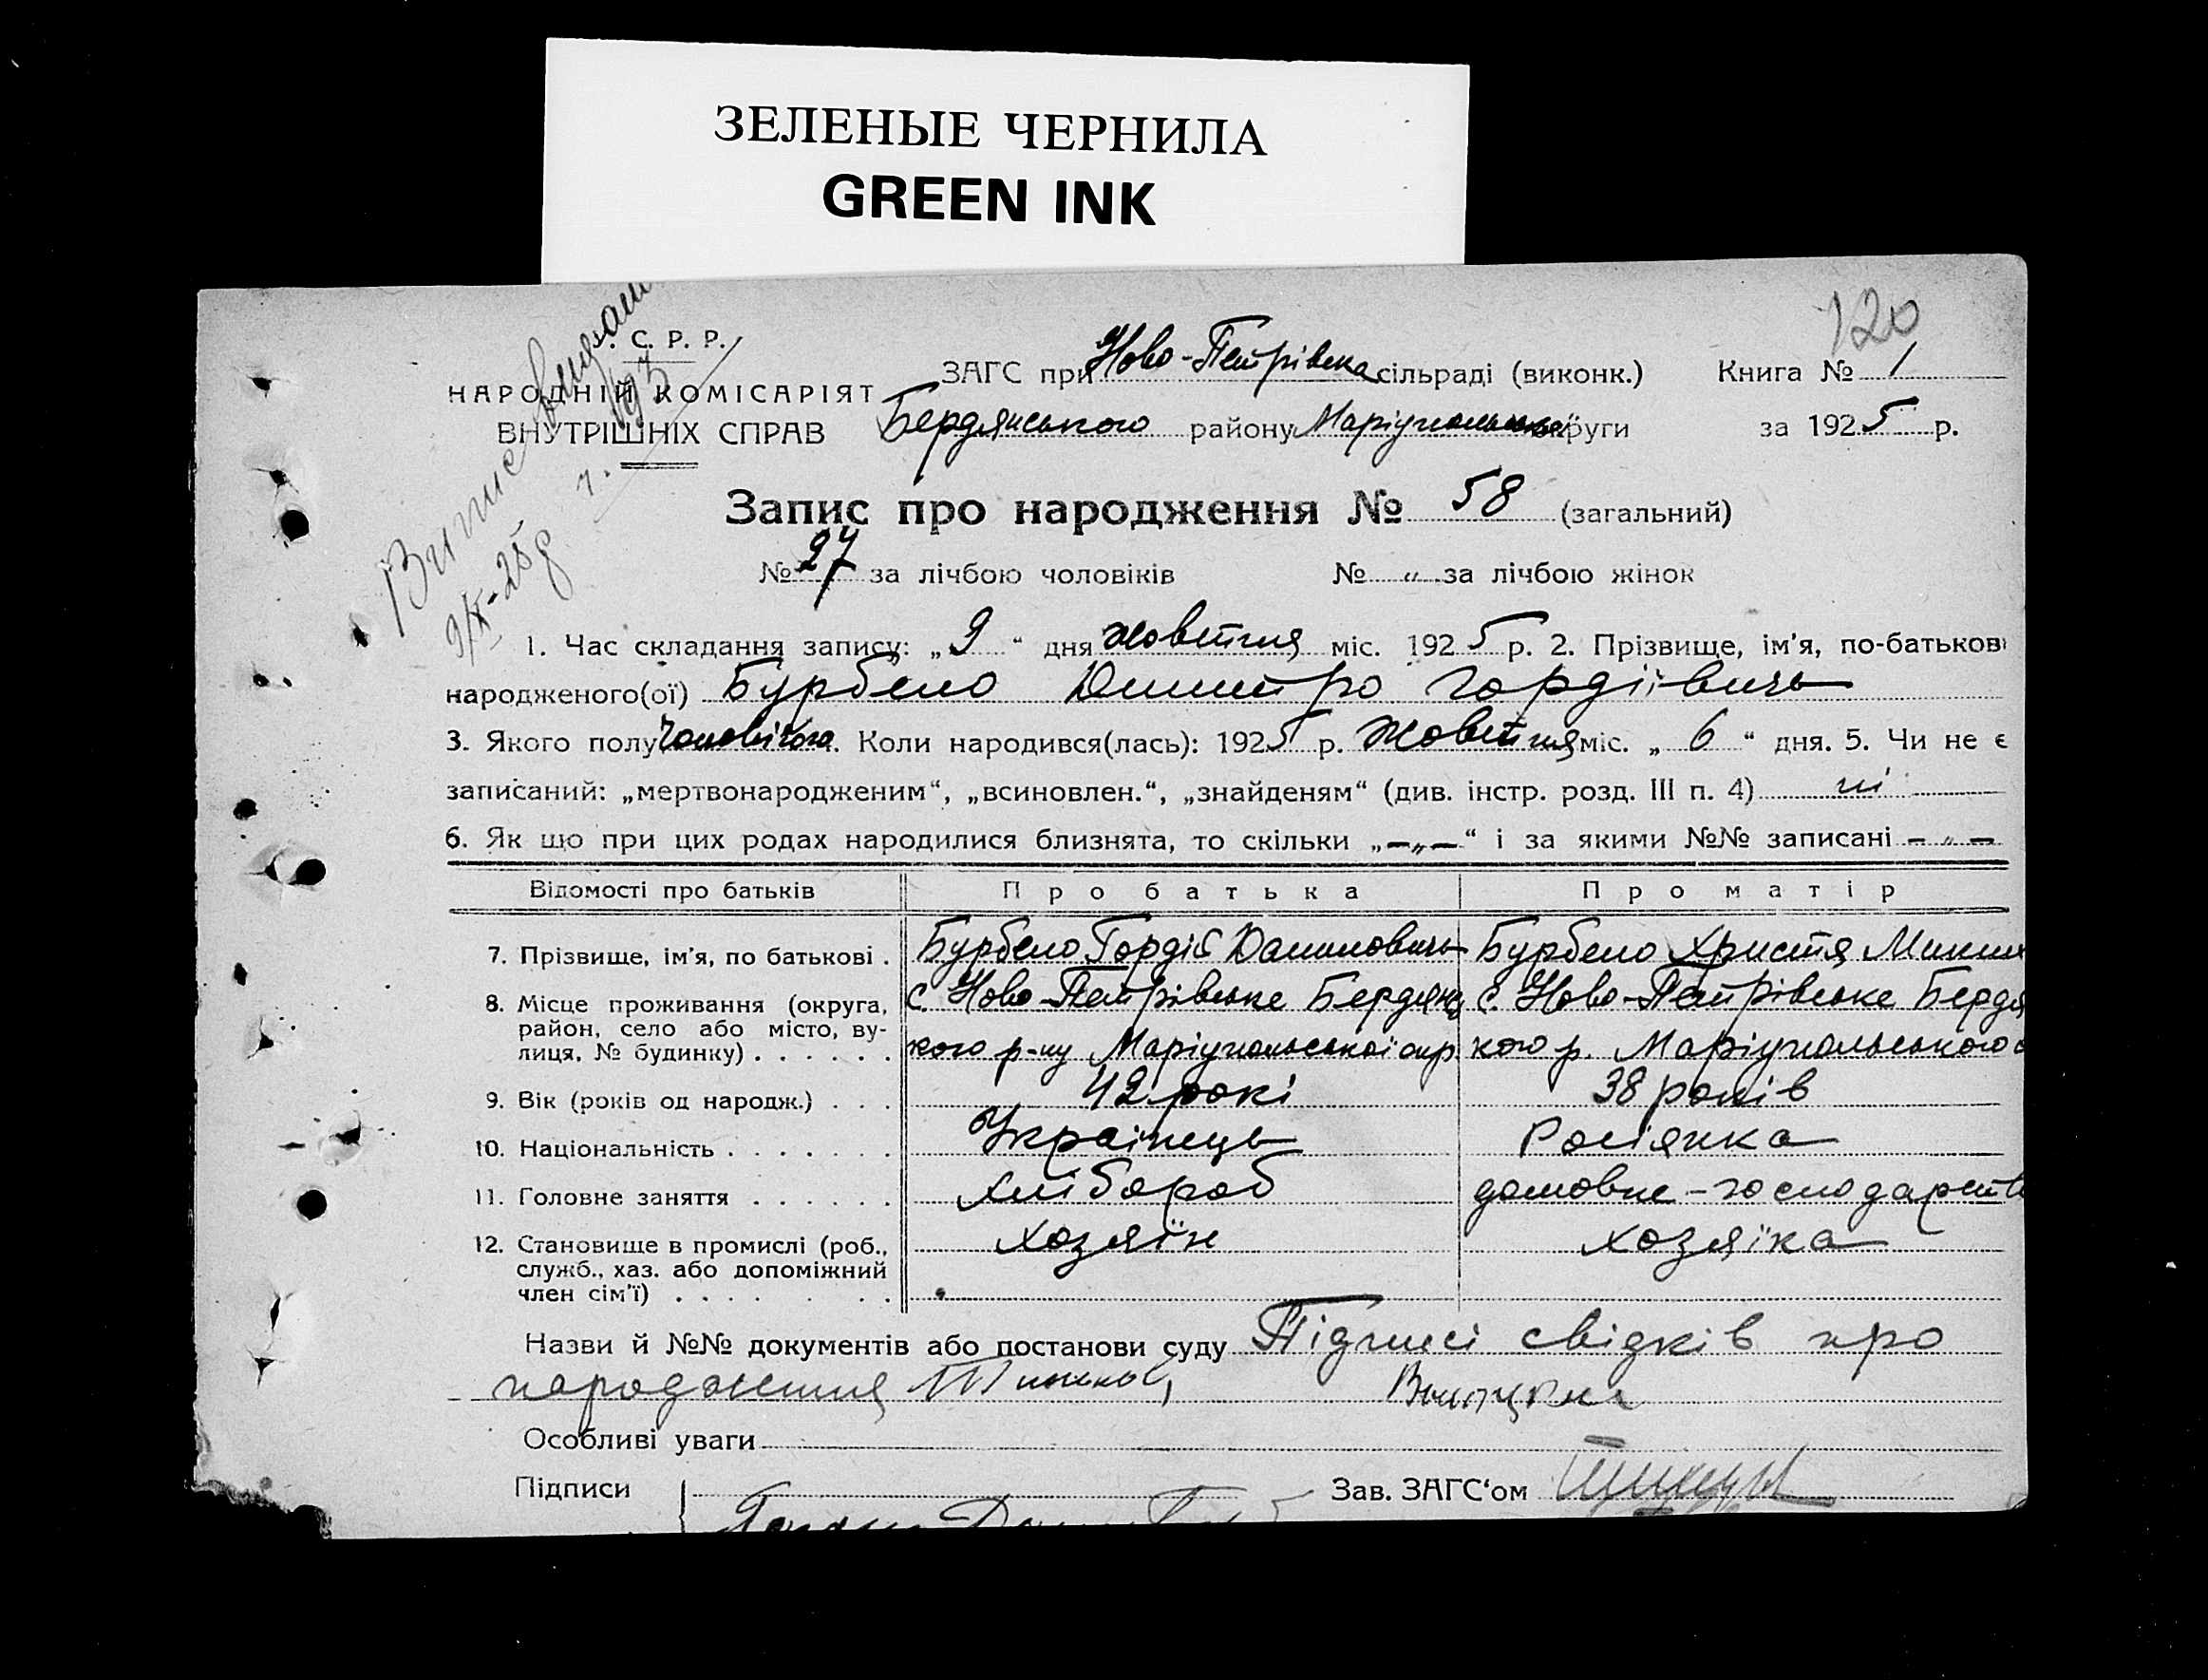 ЗЕЛЕНЫЕ ЧЕРНИЛА
GREEN INK
120
. С. Р. Р.
НАРОДНІЙ КОМІСАРІЯТ
ВНУТРІШНІХ СПРАВ
ЗАГС при Ново-Петрівска сільраді (виконк.) Книга № 1
Бердянського району Маріупольської округи за 1925 р.
Запис про народження № 58 (загальний)
№ 27 за лічбою чоловіків № „ за лічбою жінок
1. Час складання запису: „9“ дня жовтня міс. 1925 р. 2. Прізвище, ім’я, по-батькові
народженого(ої) Бурбело Дмитро Гордіївичь
3. Якого полу чоловічого. Коли народився(лась): 1925 р. Жовтня міс. „6“ дня. 5. Чи не є
записаний: „мертвонародженим“, „всиновлен.“, „знайденям“ (див. інстр. розд. III п. 4) ні
6. Як що при цих родах народилися близнята, то скільки „–„–“ і за якими №№ записані – „ –
Відомості про батьків Про батька Про матір
7. Прізвище, ім’я, по батькові . Бурбело Гордій Даниловичь Бурбело Христя
8. Місце проживання (округа, с. Ново-Петрівське Бердянс с. Ново-Петрівське Бердя
район, село або місто, ву-
лиця, № будинку) . . . . . . кого р-ну Маріупольської окр. кого р. Маріупольського о
9. Вік (років од народж.) . . . 42 рокі 38 років
10. Національність . . . . . . . Українець Росіянка
11. Головне заняття . . . . . . Хлібороб домовне-господарств
12. Становище в промислі (роб., хозяїн хозяїка
служб., хаз. або допоміжний
член сім’ї) . . . . . . .
Назви й №№ документів або постанови суду Підписі свідків про
народження
Особливі уваги
Підписи Зав. ЗАГС‘ом